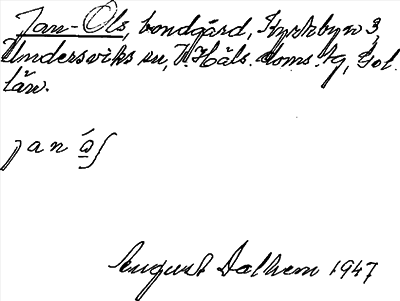 Jan-Ols, bondgård, Kyrkbyn 3,
Undersviks sn, V. Häls. doms. tg, Gvl.
län.
jan ås
August Dalhem 1947